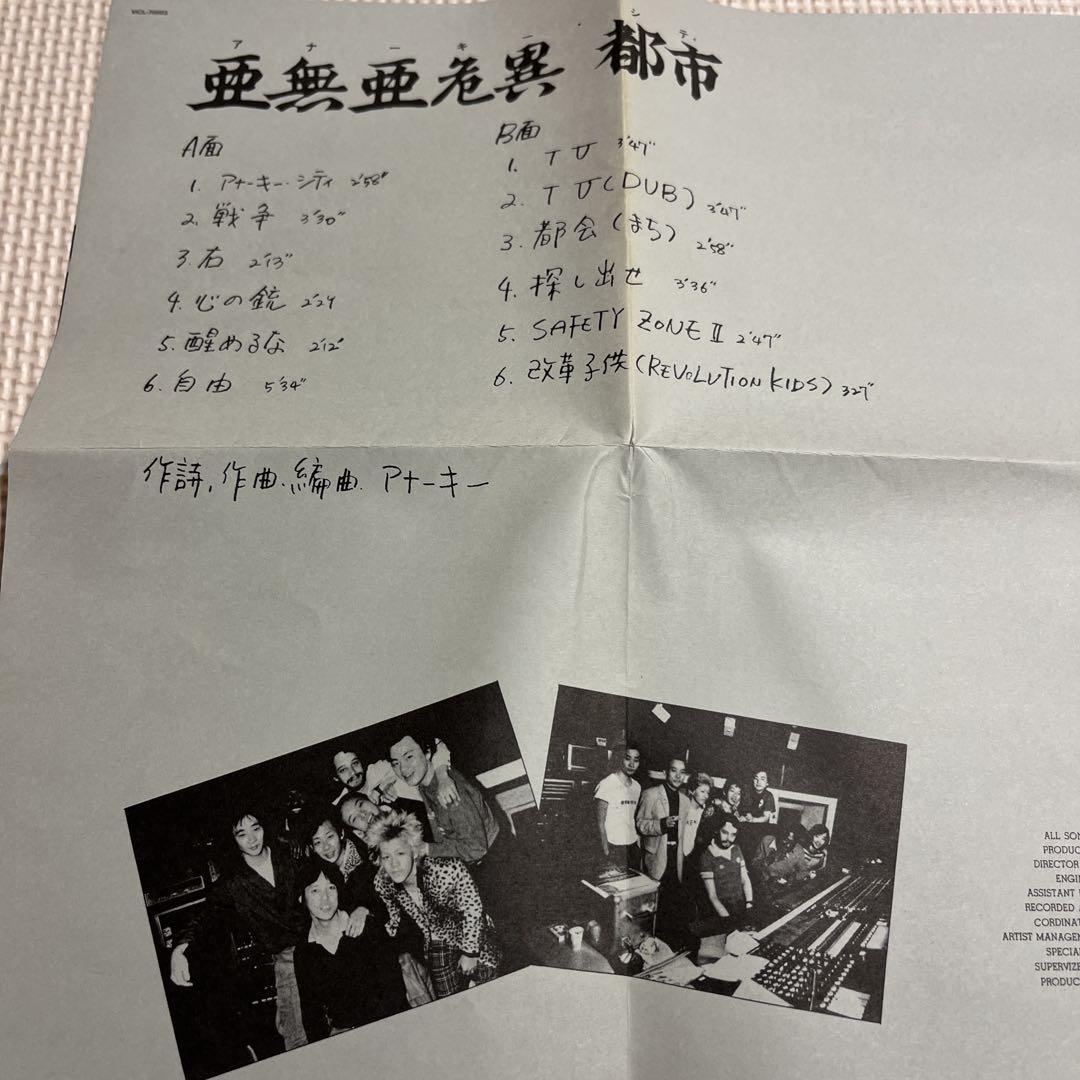 アナーキー シティ
亜無亜危異 都市
A面
1. アナーキー・シティ 2'58"
2. 戦争 3'30"
3. 右 2'13"
4. 心の銃 2'24
5. 醒めるな 2'12"
6. 自由 5'34"
B面
1. TU 3'47"
2. TU (DUB) 3'47"
3. 都会 (まち) 2'58"
4. 探し出せ 3'36"
5. SAFETY ZONE II 2'47"
6. 改革子供 (REVOLUTION KIDS) 3'27"
作詩, 作曲. 編曲. アナーキー
ALL SON
PRODUC
DIRECTOR
ENGI
ASSISTANT
RECORDED
CORDINAT
ARTIST MANAGEM
SPECIA
SUPERVIZE
PRODUC